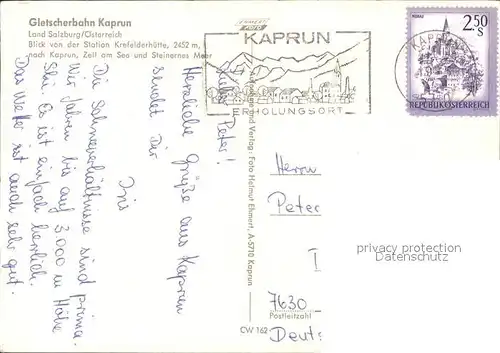 Gletscherbahn Kaprun
Land Salzburg/Österreich
Blick von der Station Krefelderhütte, 2452 m,
nach Kaprun, Zell am See und Steinernes Meer
KAPRUN
ERHOLUNGSORT
MURAU
2.50
S
REPUBLIK ÖSTERREICH
KAPRUN
Peter!
Herzliche Grüße aus Kaprun
sendet Dir
Iris
Die Schneeverhältnisse sind prima.
Wir fahren bis auf 3.000 m Höhe
Ski. Es ist einfach herrlich.
Das Wetter ist auch sehr gut.
und Verlag: Foto Helmut Ehmert, A-5710 Kaprun
CW 162
Herrn
Peter
7630
Postleitzahl
Deuts
privacy protection
Datenschutz